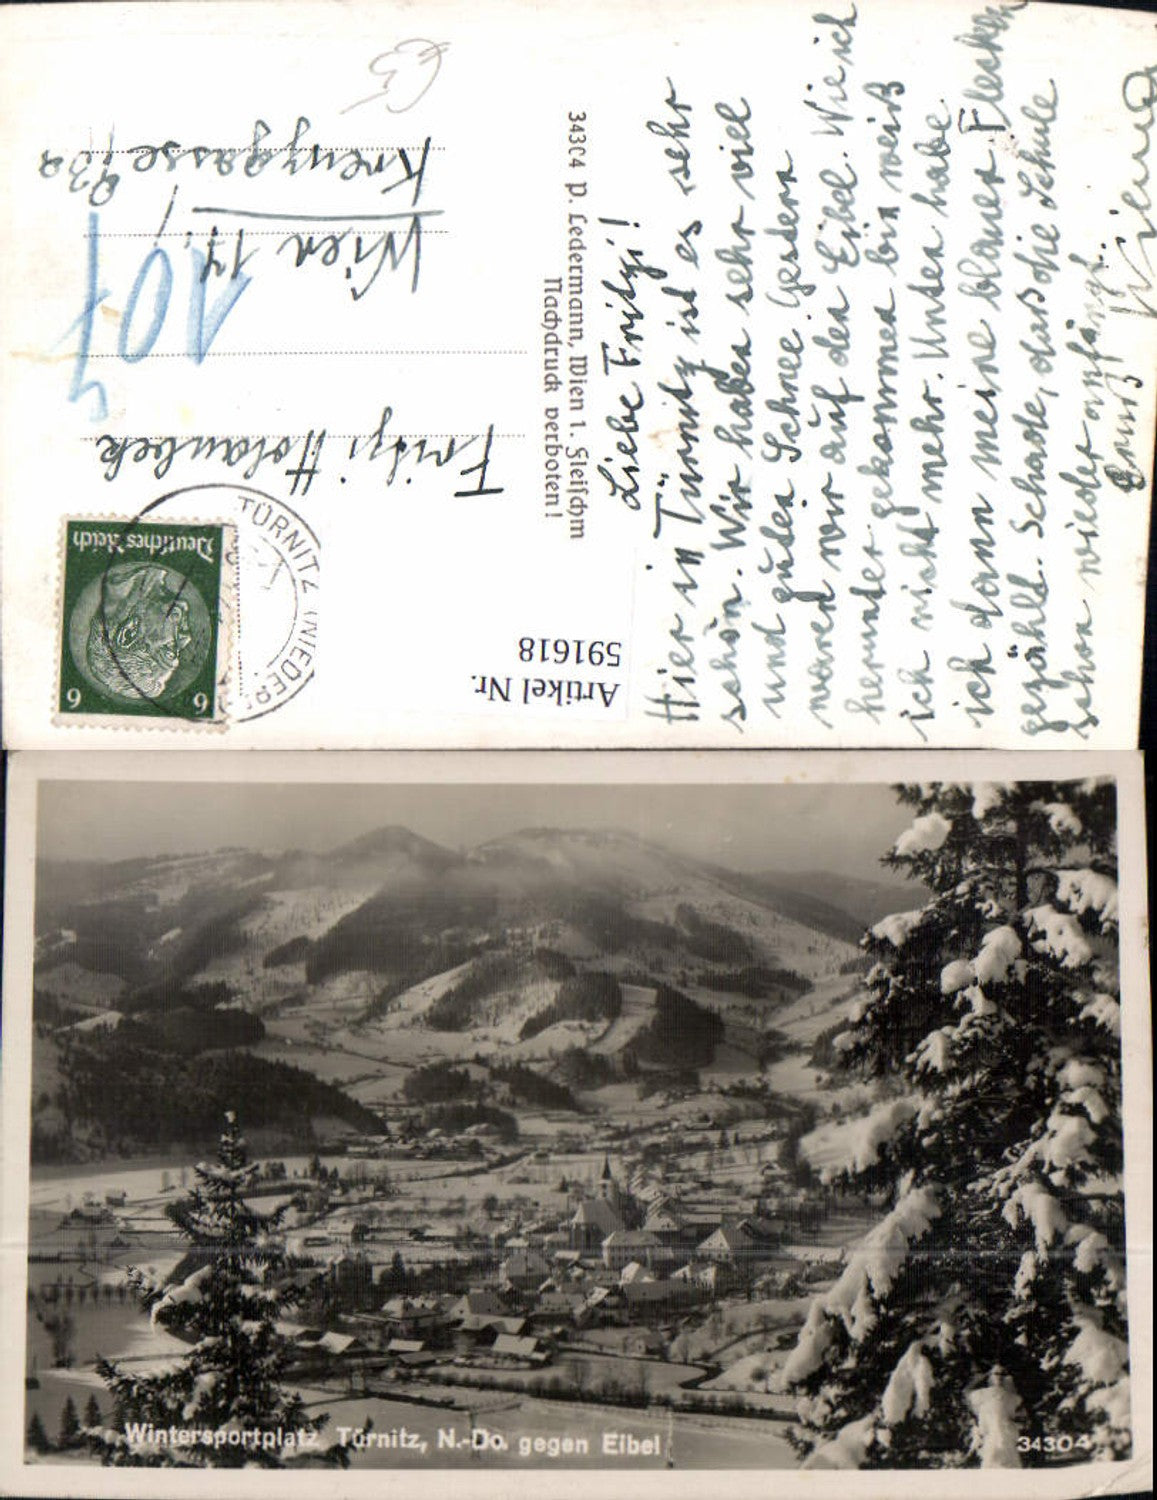 Liebe Fritzi!
Hier in Türnitz ist es sehr
schön. Wir haben sehr viel
und guten Schnee. Gestern
waren wir auf den Eibel. Wie ich
herunter gekommen bin weiß
ich nicht mehr. Unten habe
ich dann meine blauen Flecken
gezählt. Schade, daß die Schule
schon wieder anfängt.
Gruß
34304 P. Ledermann, Wien 1. Fleischm
Nachdruck verboten!
Artikel Nr.
591618
Deutsches Reich
6 6
TÜRNITZ (NIEDER
Fritzi
107
Wien 17,
Kreuzgasse 73a
Wintersportplatz Türnitz, N.-Do. gegen Eibel
34304